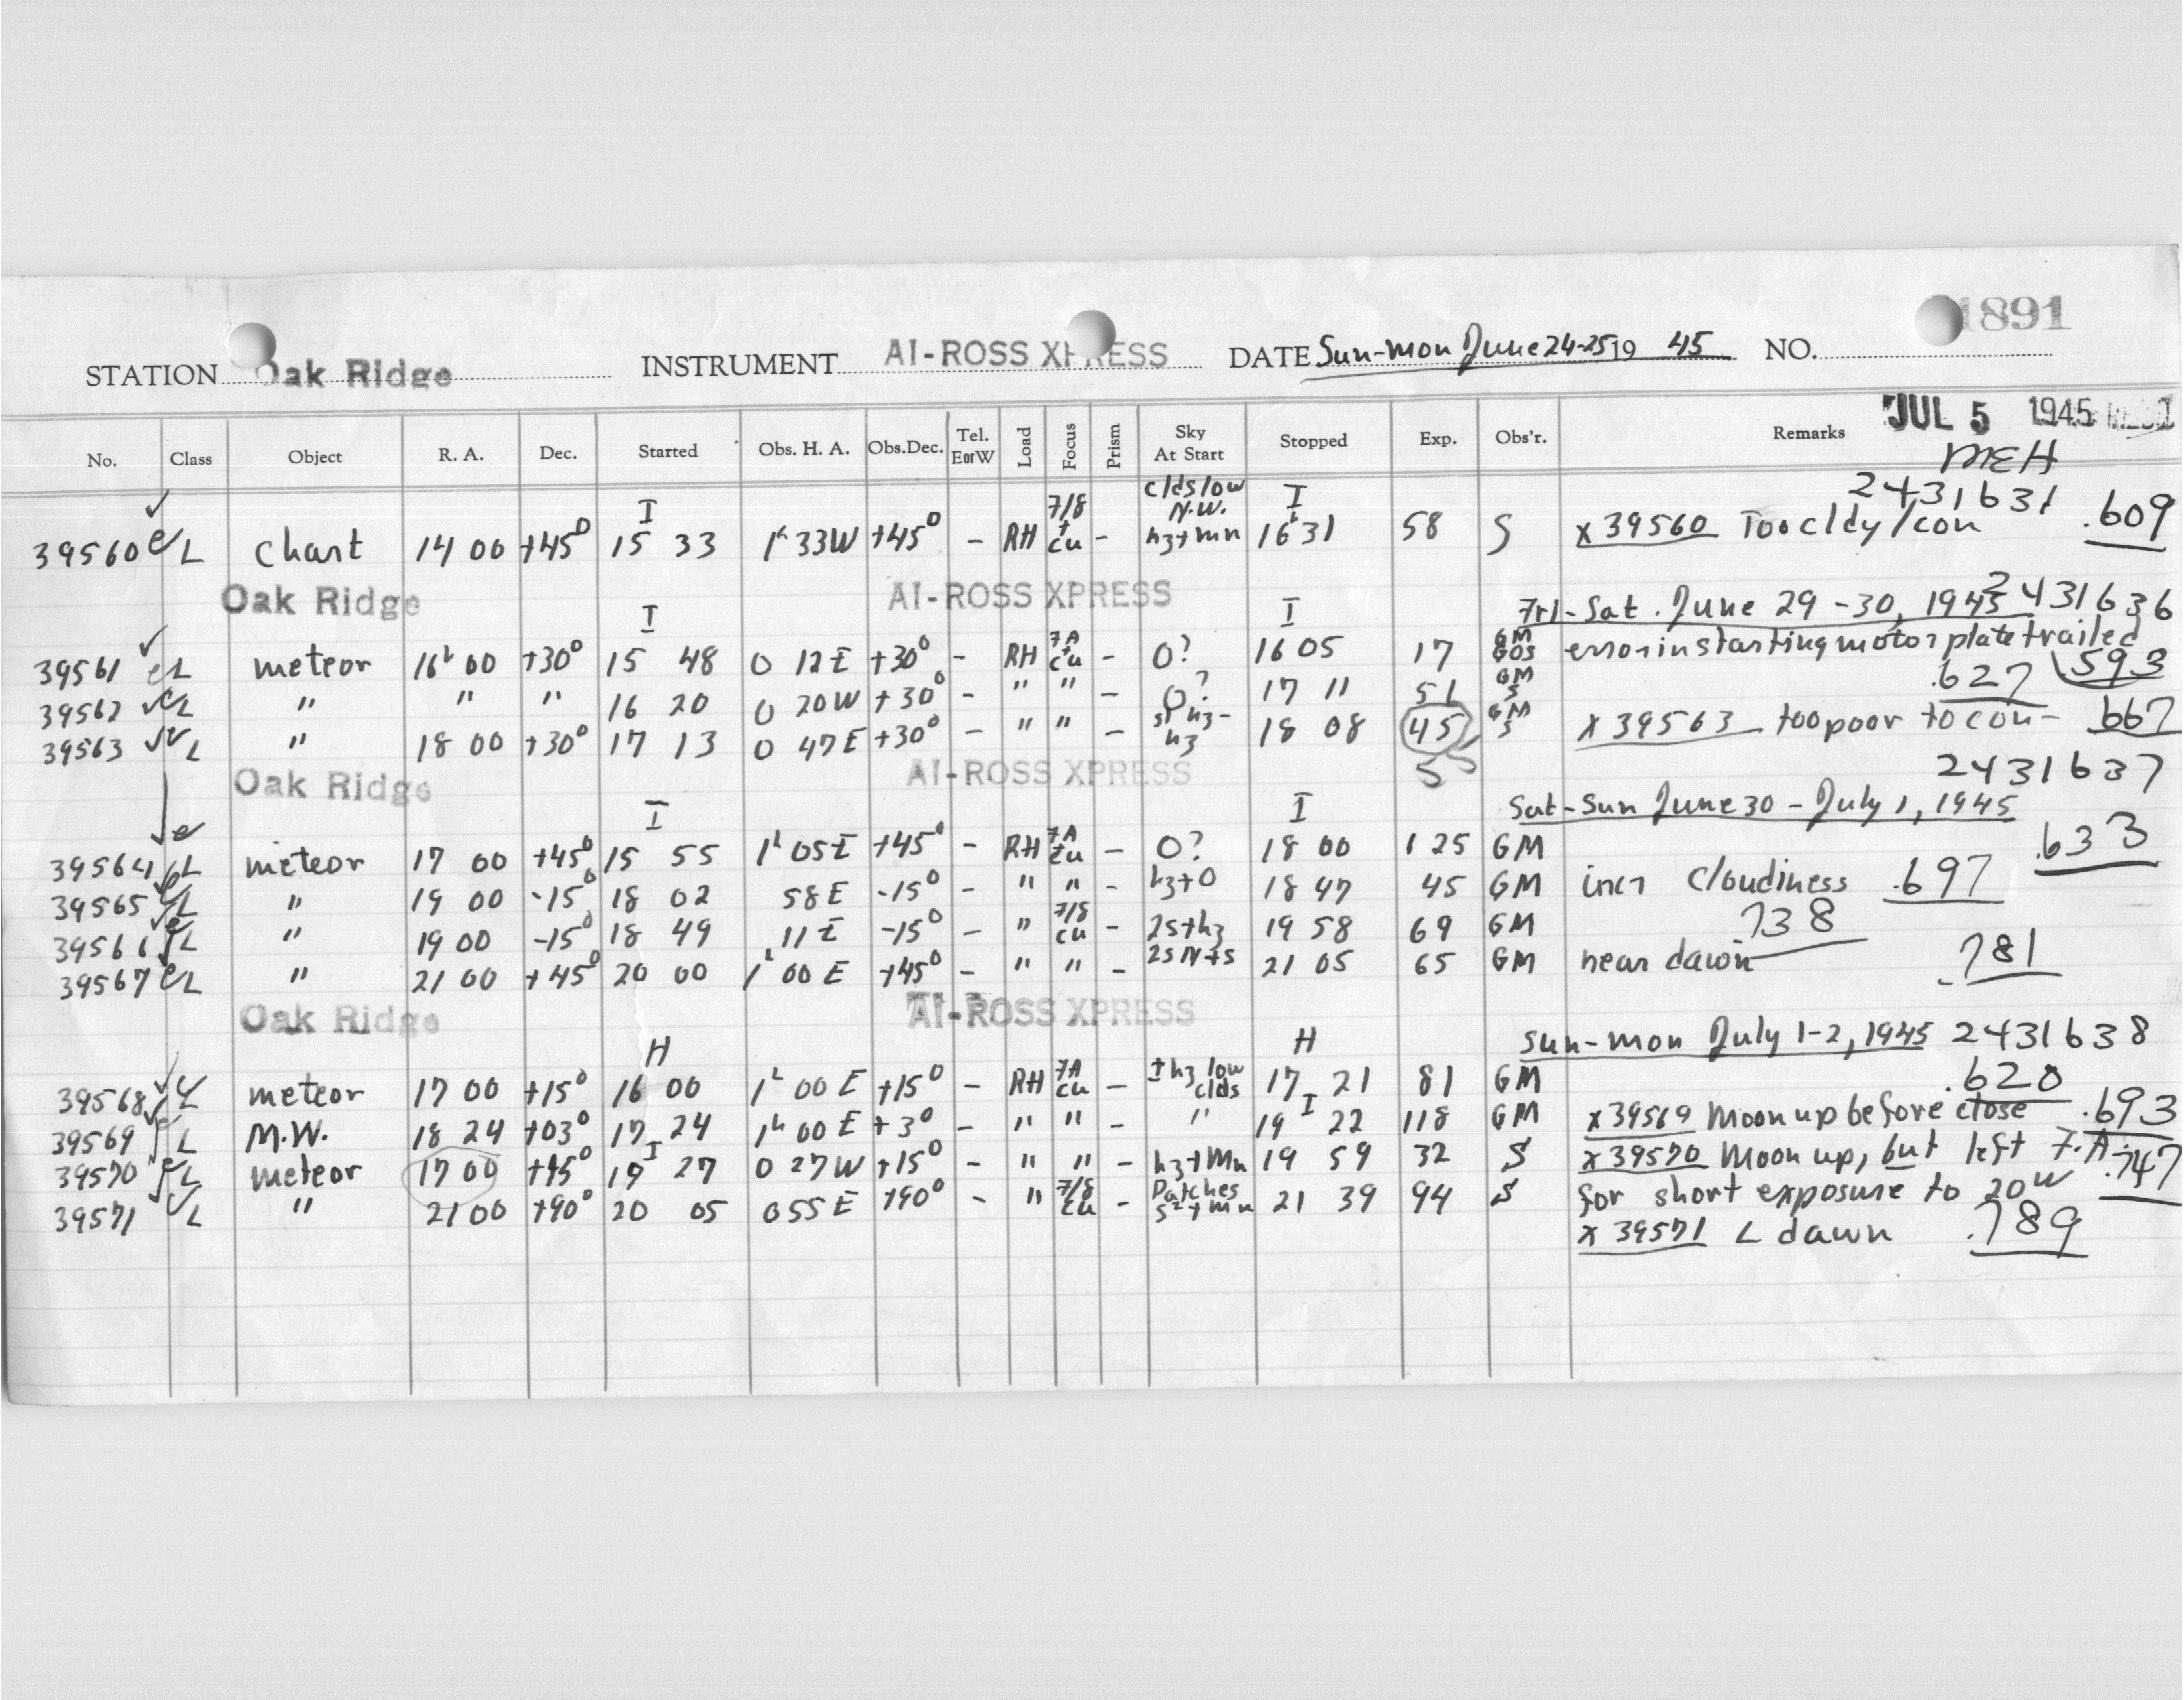 1891
STATION Oak Ridge INSTRUMENT AI-ROSS XPRESS DATE Sun-Mon June 24-25 19 45 NO.
JUL 5 1945
No. Class Object R. A. Dec. Started Obs. H. A. Obs. Dec. Tel. E or W Load Focus Prism Sky At Start Stopped Exp. Obs'r. Remarks
MEH
2431631
I clds low N.W. I
39560 L Chart 14 00 +45° 15 33 1h 33W +45° - RH 7/8 ± cu - hz+mn 16h 31 58 S x 39560 Too cldy/con .609
Oak Ridge AI-ROSS XPRESS Fri-Sat. June 29-30, 1945 2431636
I I
39561 L meteor 16h 00 +30° 15 48 0 12E +30° - RH 7A cu - 0? 16 05 17 GM GOS error in starting motor plate trailed .593
39562 L " " " 16 20 0 20W +30° - " " - 0? 17 11 51 GM S .627
39563 L " 18 00 +30° 17 13 0 47E +30° - " " - sl hz-hz 18 08 45 GM S x 39563 too poor to con- .667
55
Oak Ridge AI-ROSS XPRESS 2431637
I I Sat-Sun June 30-July 1, 1945
39564 L meteor 17 00 +45° 15 55 1h 05E +45° - RH 7A cu - 0? 18 00 125 GM .633
39565 L " 19 00 -15° 18 02 58E -15° - " " - hz+0 18 47 45 GM incr cloudiness .697
39566 L " 19 00 -15° 18 49 11E -15° - " 7/8 cu - 2s+hz 19 58 69 GM 738
39567 L " 21 00 +45° 20 00 1h 00 E +45° - " " - 2s N+s 21 05 65 GM near dawn .781
Oak Ridge AI-ROSS XPRESS
H H Sun-Mon July 1-2, 1945 2431638
39568 L meteor 17 00 +15° 16 00 1h 00 E +15° - RH 7A cu - ± hz low clds 17 21 81 GM .620
39569 L M.W. 18 24 +03° 17 24 1h 00 E +3° - " " - " 19 I 22 118 GM x 39569 Moon up before close .693
39570 L meteor 17 00 +15° 19 I 27 0 27W +15° - " " - hz+Mn 19 59 32 S x 39570 Moon up, but left 7.A. .747
39571 L " 21 00 +90° 20 05 055 E +90° - " 7/8 cu - Patches 21 39 94 S for short exposure to 20W
x 39571 L dawn .789